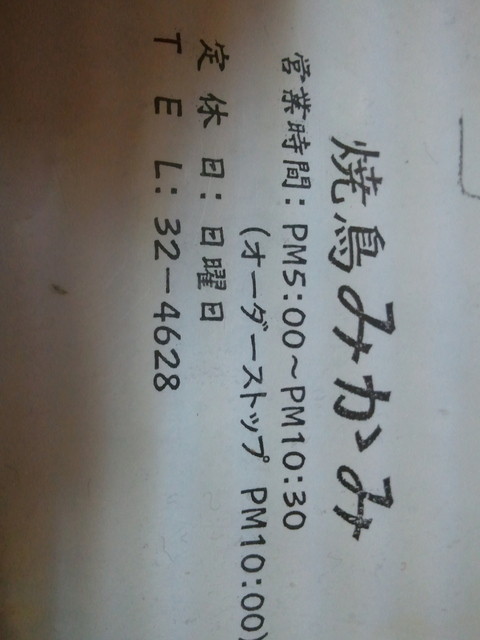 焼鳥みかみ
営業時間：PM5:00～PM10:30
(オーダーストップ PM10:00)
定休日：日曜日
TEL：32－4628